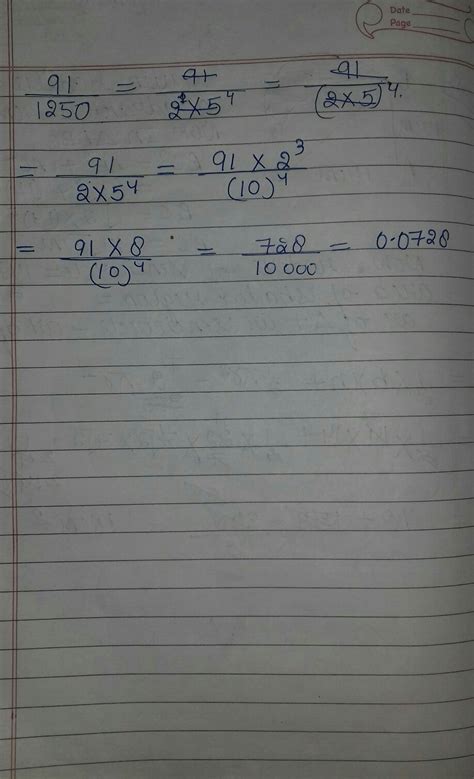 Date
Page
91/1250 = 91/2×5^4 = 91/(2×5)^4.
= 91/2×5^4 = 91×2^3/(10)^4
= 91×8/(10)^4 = 728/10000 = 0.0728